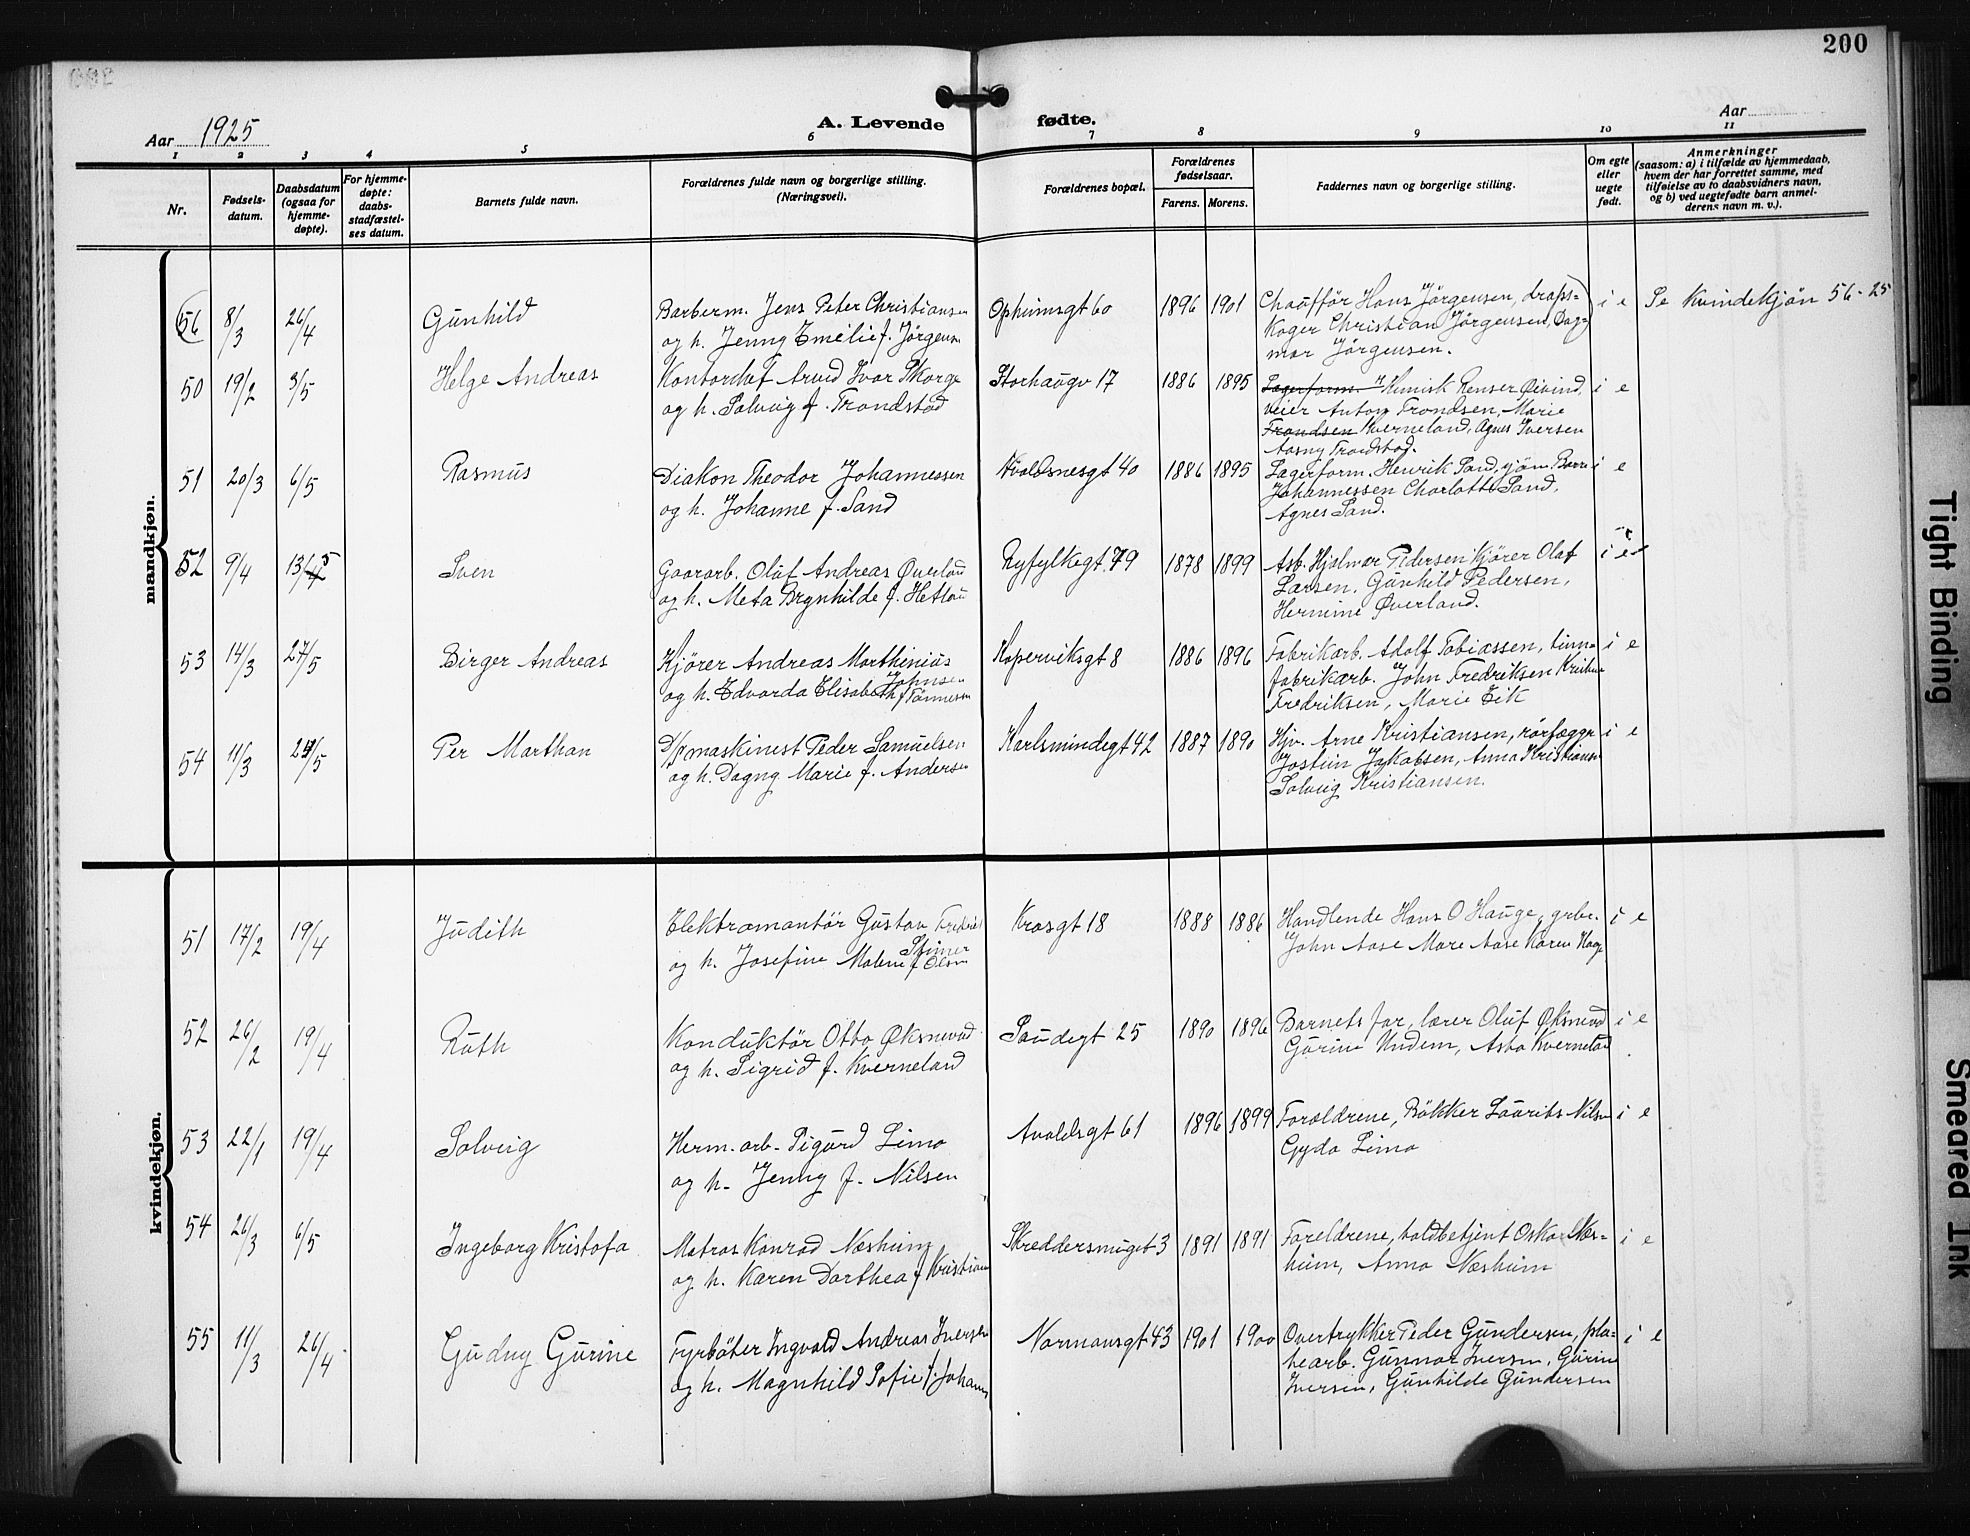 200
Aar 1925
A. Levende fødte.
Aar
1 2 3 4 5 6 7 8 9 10 11
Nr.
Fødsels-
datum.
Daabsdatum
(ogsaa for
hjemme-
døpte).
For hjemme-
døpte:
daabs-
stadfæstel-
ses datum.
Barnets fulde navn.
Forældrenes fulde navn og borgerlige stilling.
(Næringsvei).
Forældrenes bopæl.
Forældrenes
fødselsaar.
Farens. Morens.
Faddernes navn og borgerlige stilling.
Om egte
eller
uegte
født.
Anmerkninger
(saasom: a) i tilfælde av hjemmedaab,
hvem der har forrettet samme, med
tilføielse av to daabsvidners navn,
og b) ved uegtefødte barn anmel-
derens navn m. v.).
mandkjøn.
56 8/3 26/4 Gunhild
Barberm. Jens Peter Christiansen
og h. Jenny Emelie f. Jörgens
Ophiimsgt 60 1896 1901
Chaufför Hans Jörgensen, drops-
koger Christian Jörgensen, Dag-
mar Jörgensen.
i e Se kvindekjön 56-25
50 19/2 3/5 Helge Andreas
Kontorchef Arvid Ivar Skorge
og h. Solveig f. Trondstad
Storhaugv 17 1886 1895
Lagerform. Kemisk Renser Øivind,
veier Anton Trondsen, Marie
Trondsen Kverneland, Agnes Iversen
Aasny Trondstad.
i e
51 20/3 6/5 Rasmus
Diakon Theodor Johannessen
og h. Johanne f. Sand
Avaldsnesgt 40 1886 1895
Lagerform. Henrik Sand, sjöm. Barre
Johannessen Charlotte Sand,
Agnes Sand.
i e
52 9/4 13/5 Sven
Gaararb. Oluf Andreas Øverlan
og h. Meta Brynhilde f. Hetlan
Ryfylkegt 79 1878 1899
Asb. Hjalmar Pedersen kjörer Olaf
Larsen, Gunhild Pedersen,
Hermine Øverland.
i e
53 14/3 27/5 Birger Andreas
Kjörer Andreas Marthinius
Johnsen
og h. Edvarda Elisabeth f. Tönnesen
Kopervikgt 8 1886 1896
Fabrikarb. Adolf Tobiassen, tinn-
fabrikarb. John Fredriksen
Fredriksen, Marie Eik
i e
54 11/3 24/5 Per Marthon
D/s maskinest Peder Samuelsen
og h. Dagny Marie f. Andersen
Karlsmindegt 42 1887 1890
Hjv. Arne Kristiansen, rörlægger
Jostein Jakobsen, Anna Kristiansen
Solveig Kristiansen.
i e
kvindekjøn.
51 17/2 19/4 Judith
Elektromantör Gustav Fredrik
Steiner
og h. Josefine Malene f. Olsen
Krosgt 18 1888 1886
Handlende Hans O Hauge, grbr.
John Aase Mare Aase Karen Hauge
i e
52 26/2 19/4 Ruth
Konduktör Otto Øksnevad
og h. Sigrid f. Kverneland
Saudegt 25 1890 1896
Barnets far, lærer Oluf Øksnevad
Gurine Undem, Asta Kverneland
i e
53 22/1 19/4 Solveig
Herm. arb. Sigurd Lima
og h. Jenny f. Nilsen
Avaldsgt 61 1896 1899
Foreldrene, Bökker Laurits Nilsen
Gyda Lima
i e
54 26/3 6/5 Ingeborg Kristofa
Matros Konrad Næsheim
og h. Karen Dorthea f. Kristian
Skreddersmuget 3 1891 1891
Foreldrene, toldbetjent Oskar Næs-
heim, Anna Næsheim
i e
55 11/3 26/4 Gudny Gurine
Fyrböter Ingvald Andreas Iversen
og h. Magnhild Sofie f. Johanns
Normansgt 43 1901 1900
Overtrykker Peder Gundersen, pla-
tearb. Gunnar Iversen, Gurine
Iversen, Gunhilde Gundersen
i e
Tight Binding
Smeared Ink